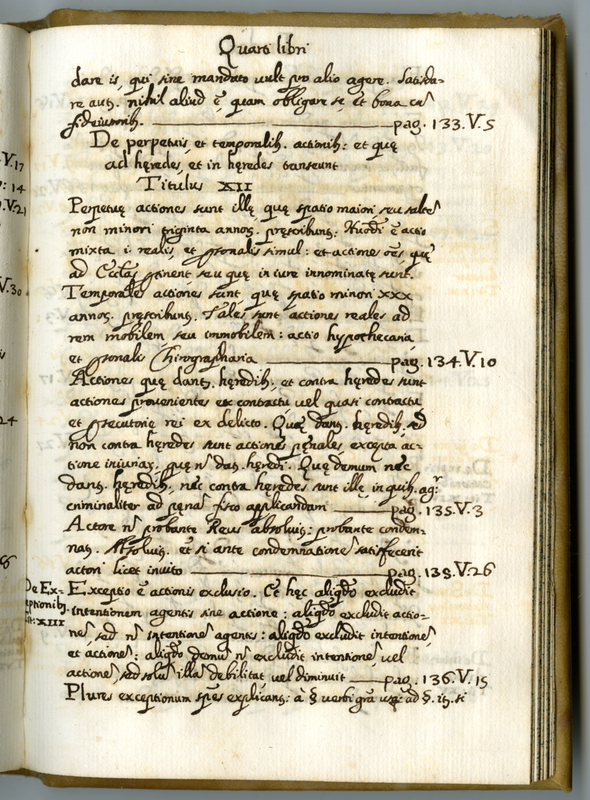 Quarti libri
dare is, qui sine mandato uult pro alio agere. Satisda-
re autz. nihil aliud ẽ, quam obligare se, et bona
fideiussorib. pag. 133.V.5
De perpetuis et temporalib. actionib: et quę
ad hęredes, et in hęredes transeunt
Titulus XII
Perpetuę actiones sunt illę quę spatio maiori seu saltẽ
non minori triginta annoȝ. pręscribunt. Huodi ẽ actio
mixta i. realis, et psonalis simul: et actiones oẽs quę
ad Ecclãs ptinent seu quę in iure innominatę sunt.
Temporales actiones sunt quę spatio minori XXX
annoȝ. pręscribunt. Tales sunt actiones reales ad
rem mobilem seu immobilem: actio hypothecaria
et psonalis Chirographaria pag. 134.V.10
Actiones quę dantȝ. hęredib, et contra hęredes sunt
actiones prouenientes ex contractu uel quasi contractu
et psecutorię rei ex delicto. Quę dantȝ. hęredib, sed
non contra hęredes sunt actiones pęnales, excepta ac-
tione iniuriaȝ, quę ñ datȝ hęredi. Quę demum nec
dantȝ. hęredib, nec contra hęredes sunt illę in quib. agr
criminaliter ad penã fisco applicandam pag. 135.V.3
Actore ñ probante Reus absoluitȝ: probante condem-
natȝ. Absoluitȝ. et si ante condemnationẽ satisfecerit
actori licet inuito pag. 135.V.26
De Ex-
ceptionibȝ.
Tit: XIII
Exceptio ẽ actionis exclusio. Et hęc aliqdo excludit
intentionem agentis sine actione: aliqdo excludit actio-
nẽ, sed ñ intentionẽ agentis: aliqdo excludit intentionẽ
et actionẽ: aliqdo demũ ñ excludit intentionẽ, uel
actionẽ, sed solũ illã debilitat uel diminuit pag. 136.V.15
Plures exceptionum spẽs explicantȝ: à § uerbi grã usqȝ ad §. itȝ. si
V.17
: 14
.V.21
V.30
24